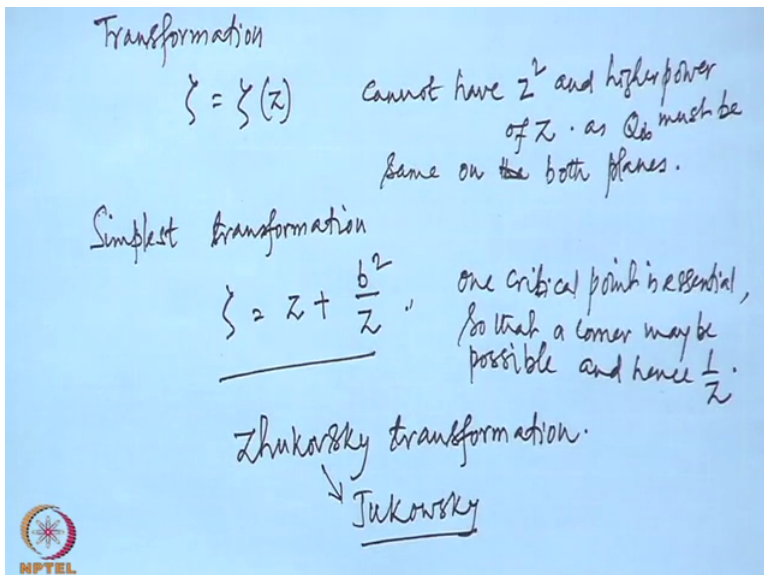 Transformation
ζ = ζ(z) cannot have z² and higher power
of z. as Q∞ must be
same on both planes.
Simplest transformation
ζ = z + b²/z, one critical point is essential,
so that a corner may be
possible and hence 1/z.
Zhukovsky transformation.
Jukowsky
NPTEL